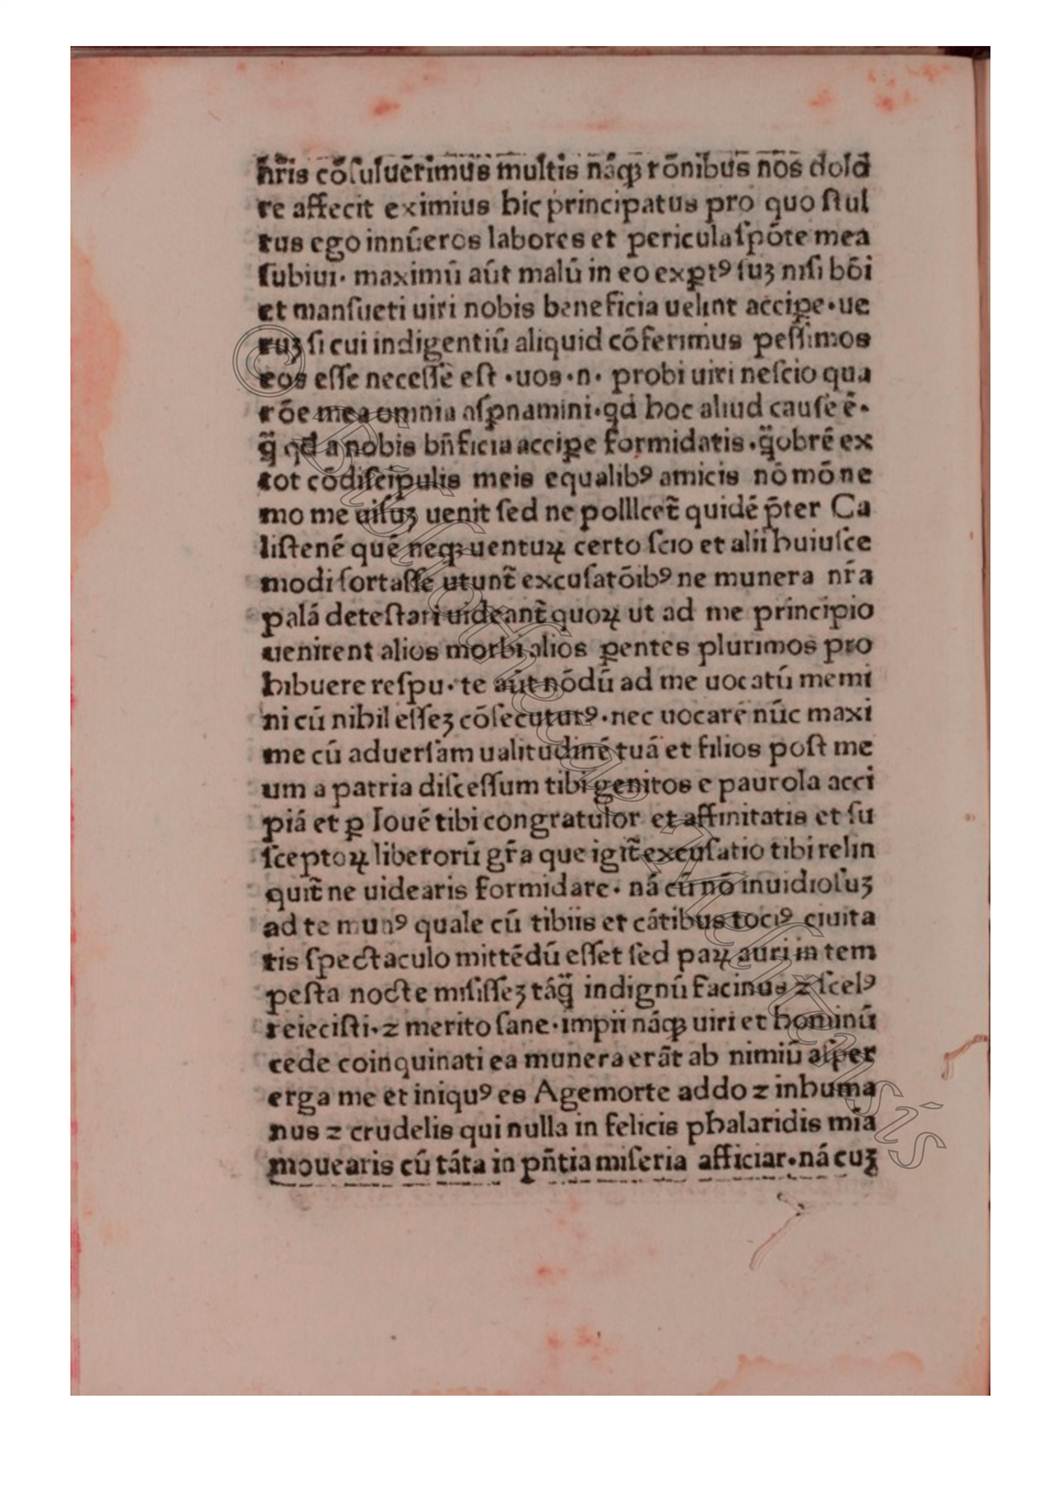 nr̄is cōſuluērimus multis nāqꝫ rōnibus nos dolo
re affecit eximius hic principatus pro quo ſtul
tus ego innūeros labores et pericula ſpōte mea
ſubiui· maximū aūt malū in eo exꝑtꝰ ſuꝫ niſi bōi
et manſueti uiri nobis beneficia uelint acciꝑe·ue
ruꝫ ſi cui indigentiū aliquid cōferimus peſſimos
eos eſſe neceſſe eſt ·uos·n· probi uiri neſcio qua
rōe mea omnia aſꝑnamini·qd hoc aliud cauſe ē·
q̃ qd a nobis bñficia acciꝑe formidatis·q̃obrē ex
tot cōdiſcipulis meis equalibꝰ amicis nō mō ne
mo me uiſuꝫ uenit ſed ne polllcet̃ quidē p̄ter Ca
liſtenē quē neqꝫ uentuꝝ certo ſcio et alii huiuſce
modi fortaſſe utunt̃ excuſatōibꝰ ne munera nr̄a
palā deteſtari uideant̃ quoꝝ ut ad me principio
uenirent alios morbi alios ꝑentes plurimos pro
hibuere reſpu·te aūt nōdū ad me uocatū memi
ni cū nihil eſſeꝫ cōſecuturꝰ·nec uocarē nūc maxi
me cū aduerſam ualitudinē tuā et filios poſt me
um a patria diſceſſum tibi genitos e paurola acci
piā et ꝑ Iouē tibi congratulor et affinitatis et ſu
ſceptoꝝ liberorū gr̄a que igit̃ excuſatio tibi relin
quit̃ ne uidearis formidare· nā cū nō inuidioſuꝫ
ad te munꝰ quale cū tibiis et cātibus tociꝰ ciuita
tis ſpectaculo mittēdū eſſet ſed paꝝ auri in tem
peſta nocte miſiſſeꝫ tāq̃ indignū facinus ꝛ ſcelꝰ
reieciſti·ꝛ merito ſane·impii nāqꝫ uiri et hominū
cede coinquinati ea munera erāt ab nimiū aſper
erga me et iniquꝰ es Agemorte addo ꝛ inhuma
nus ꝛ crudelis qui nulla in felicis phalaridis mīa
mouearis cū tāta in pn̄tia miſeria afficiar·nā cuꝫ
© Bibliotheca Vaticana